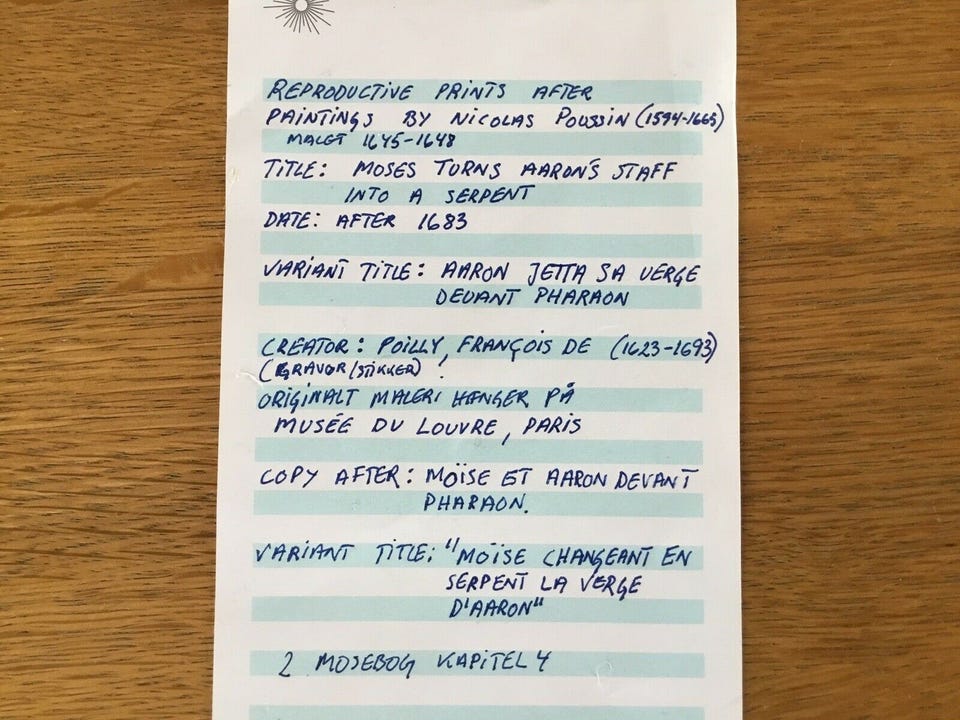 REPRODUCTIVE PRINTS AFTER
PAINTINGS BY NICOLAS POUSSIN (1594-1665)
MALET 1645-1648
TITLE: MOSES TURNS AARON'S STAFF
INTO A SERPENT
DATE: AFTER 1683
VARIANT TITLE: AARON JETTA SA VERGE
DEVANT PHARAON
CREATOR: POILLY, FRANÇOIS DE (1623-1693)
(GRAVØR/STIKKER)
ORIGINALT MALERI HÆNGER PÅ
MUSÉE DU LOUVRE, PARIS
COPY AFTER: MOÏSE ET AARON DEVANT
PHARAON.
VARIANT TITLE: "MOÏSE CHANGEANT EN
SERPENT LA VERGE
D'AARON"
2 MOSEBOG KAPITEL 4